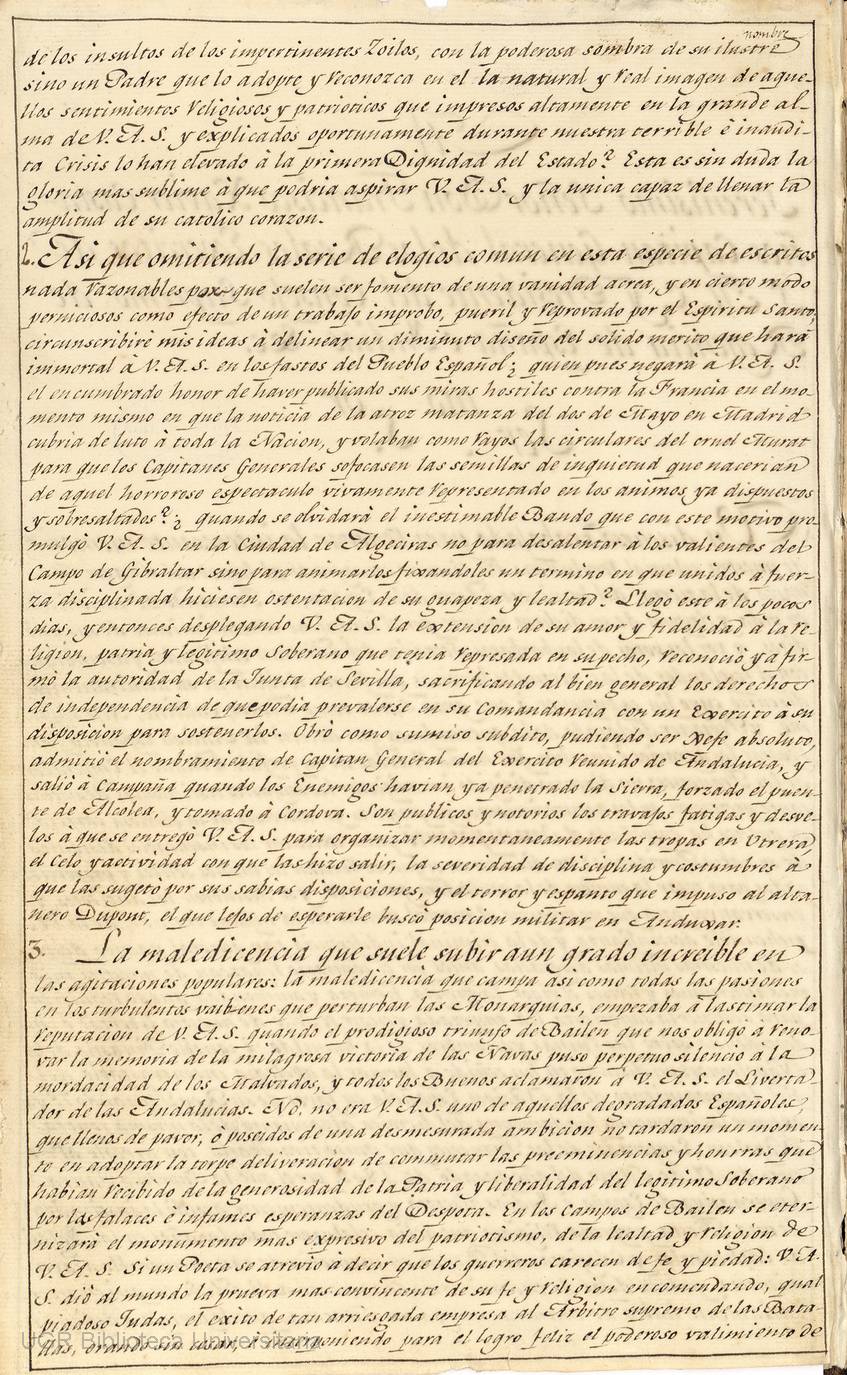 nombre
de los insultos de los impertinentes Zoilos, con la poderosa sombra de su ilustre
sino un Padre que lo adopte y reconozca en el la natural y real imagen de aque-
llos sentimientos religiosos y patrioticos que impresos altamente en la grande al-
ma de V. A. S. y explicados oportunamente durante nuestra terrible è inaudi-
ta Crisis lo han elevado à la primera Dignidad del Estado? Esta es sin duda la
gloria mas sublime à que podria aspirar V. A. S. y la unica capaz de llenar la
amplitud de su catolico corazon.
2. Asi que omitiendo la serie de elogios comun en esta especie de escritos
nada razonables porque suelen ser fomento de una vanidad aerea, y en cierto modo
perniciosos como efecto de un trabajo improbo, pueril y reprovado por el Espiritu Santo,
circunscribiré mis ideas à delinear un diminuto diseño del solido merito que hará
immortal à V. A. S. en los fastos del Pueblo Español; ¿ quien pues negarà à V. A. S.
el encumbrado honor de haver publicado sus miras hostiles contra la Francia en el mo-
mento mismo en que la noticia de la atroz matanza del dos de Mayo en Madrid
cubria de luto à toda la Nacion, y volaban como rayos las circulares del cruel Murat
para que los Capitanes Generales sofocasen las semillas de inquietud que nacerian
de aquel horroroso espectaculo vivamente representado en los animos ya dispuestos
y sobresaltados? ¿ quando se olvidarà el inestimable Bando que con este motivo pro-
mulgò V. A. S. en la Ciudad de Algeciras no para desalentar à los valientes del
Campo de Gibraltar sino para animarlos fixandoles un termino en que unidos à fuer-
za disciplinada hiciesen ostentacion de su guapeza y lealtad? Llegò este à los pocos
dias, y entonces desplegando V. A. S. la extension de su amor y fidelidad à la re-
ligion, patria y legitimo Soberano que tenia represada en su pecho, reconociò y afir-
mò la autoridad de la Junta de Sevilla, sacrificando al bien general los derechos
de independencia de que podia prevalerse en su Comandancia con un Exercito à su
disposicion para sostenerlos. Obrò como sumiso subdito, pudiendo ser Xefe absoluto,
admitiò el nombramiento de Capitan General del Exercito reunido de Andalucia, y
saliò à Campaña quando los Enemigos havian ya penetrado la Sierra, forzado el puen-
te de Alcolea, y tomado à Cordova. Son publicos y notorios los travajos fatigas y desve-
los à que se entregò V. A. S. para organizar momentaneamente las tropas en Utrera,
el Celo y actividad con que las hizo salir, la severidad de disciplina y costumbres à
que las sugetò por sus sabias disposiciones, y el terror y espanto que impuso al alta-
nero Dupont, el que lejos de esperarle buscò posicion militar en Anduxar.
3. La maledicencia que suele subir a un grado increible en
las agitaciones populares: la maledicencia que campa asi como todas las pasiones
en los turbulentos vaibenes que perturban las Monarquias, empezaba à lastimar la
reputacion de V. A. S. quando el prodigioso triunfo de Bailen que nos obligò à reno-
var la memoria de la milagrosa victoria de las Navas puso perpetuo silencio à la
mordacidad de los Malvados, y todos los Buenos aclamaron à V. A. S. el Liverta-
dor de las Andalucias. No, no era V. A. S. uno de aquellos degradados Españoles,
que llenos de pavor, ò poseidos de una desmesurada ambicion no tardaron un momen-
to en adoptar la torpe deliveracion de commutar las preeminencias y honrras que
habian recibido de la generosidad de la Patria y liberalidad del legitimo Soberano
por las falaces è infames esperanzas del Despota. En los Campos de Bailen se eter-
nizarà el monumento mas expresivo del patriotismo, de la lealtad y religion de
V. A. S. Si un Poeta se atreviò à decir que los guerreros carecen de fe y piedad: V. A.
S. diò al mundo la prueva mas convincente de su fe y religion encomendando, qual
piadoso Judas, el exito de tan arriesgada empresa al Arbitro supremo de las Bata-
llas, orando sin cesar, è interponiendo para el logro feliz el poderoso valimiento de
UGR Biblioteca Universitaria